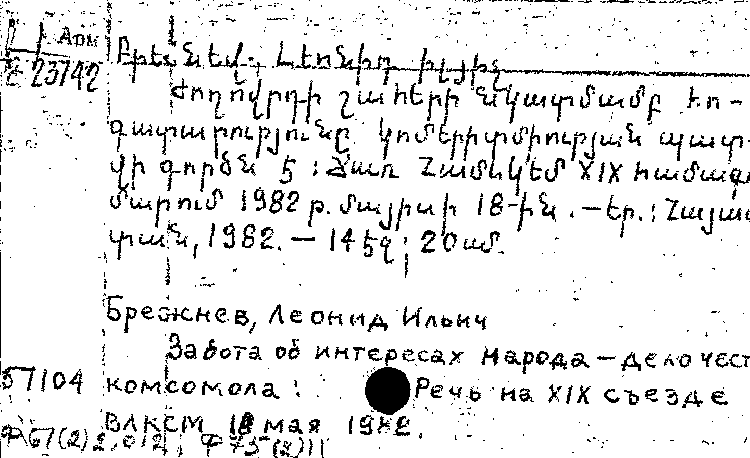 Арм
Բրեժնև, Լեոնիդ Իլյիչ
23742
Ժողովրդի շահերի նկատմամբ հո-
գատարությունը կոմերիտմիության պատ-
վի գործն է : Ճառ ՀամԼԿԵՄ XIX համագ
մարում 1982 թ. մայիսի 18-ին .— Եր.: Հայաս
տան, 1982. — 14 էջ ; 20 սմ.
Брежнев, Леонид Ильич
Забота об интересах народа — дело чест
57104 комсомола : Речь на XIX съезде
ВЛКСМ 18 мая 1982.